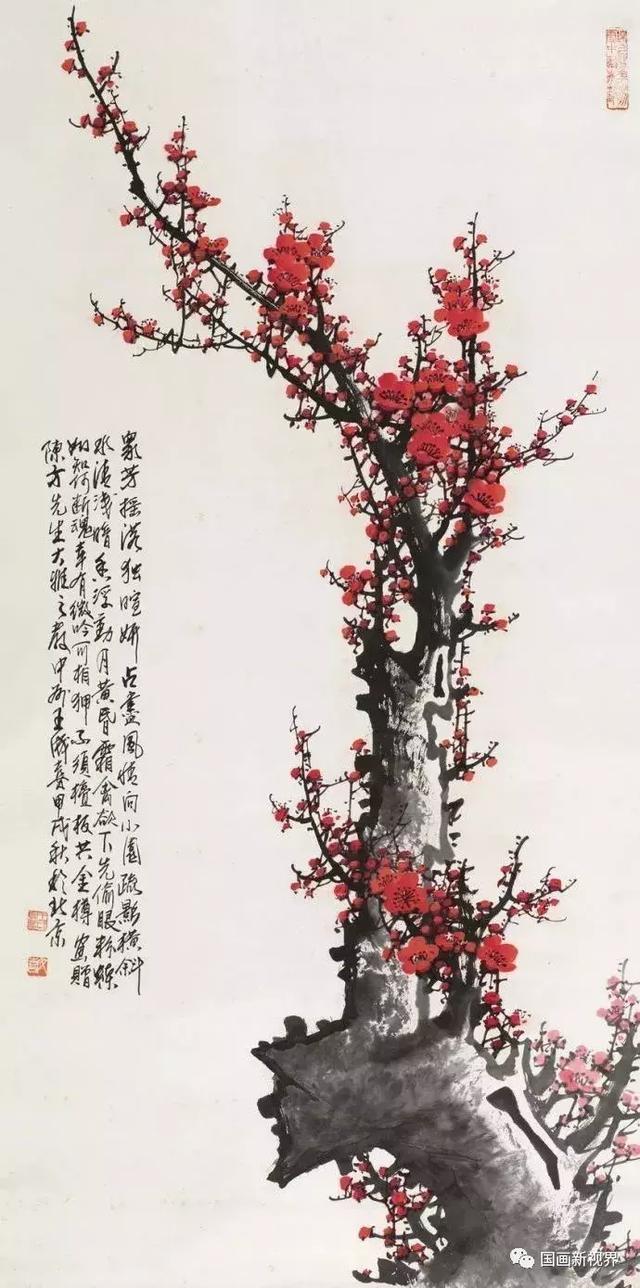 眾芳摇落独暄妍占盡風情向小園疏影橫斜
水清浅暗香浮動月黄昏霜禽欲下先偷眼粉蝶
如知合断魂幸有微吟可相狎不須檀板共金樽寫贈
陳方先生大雅之教中州王成喜甲戌秋於北京
国画新视界